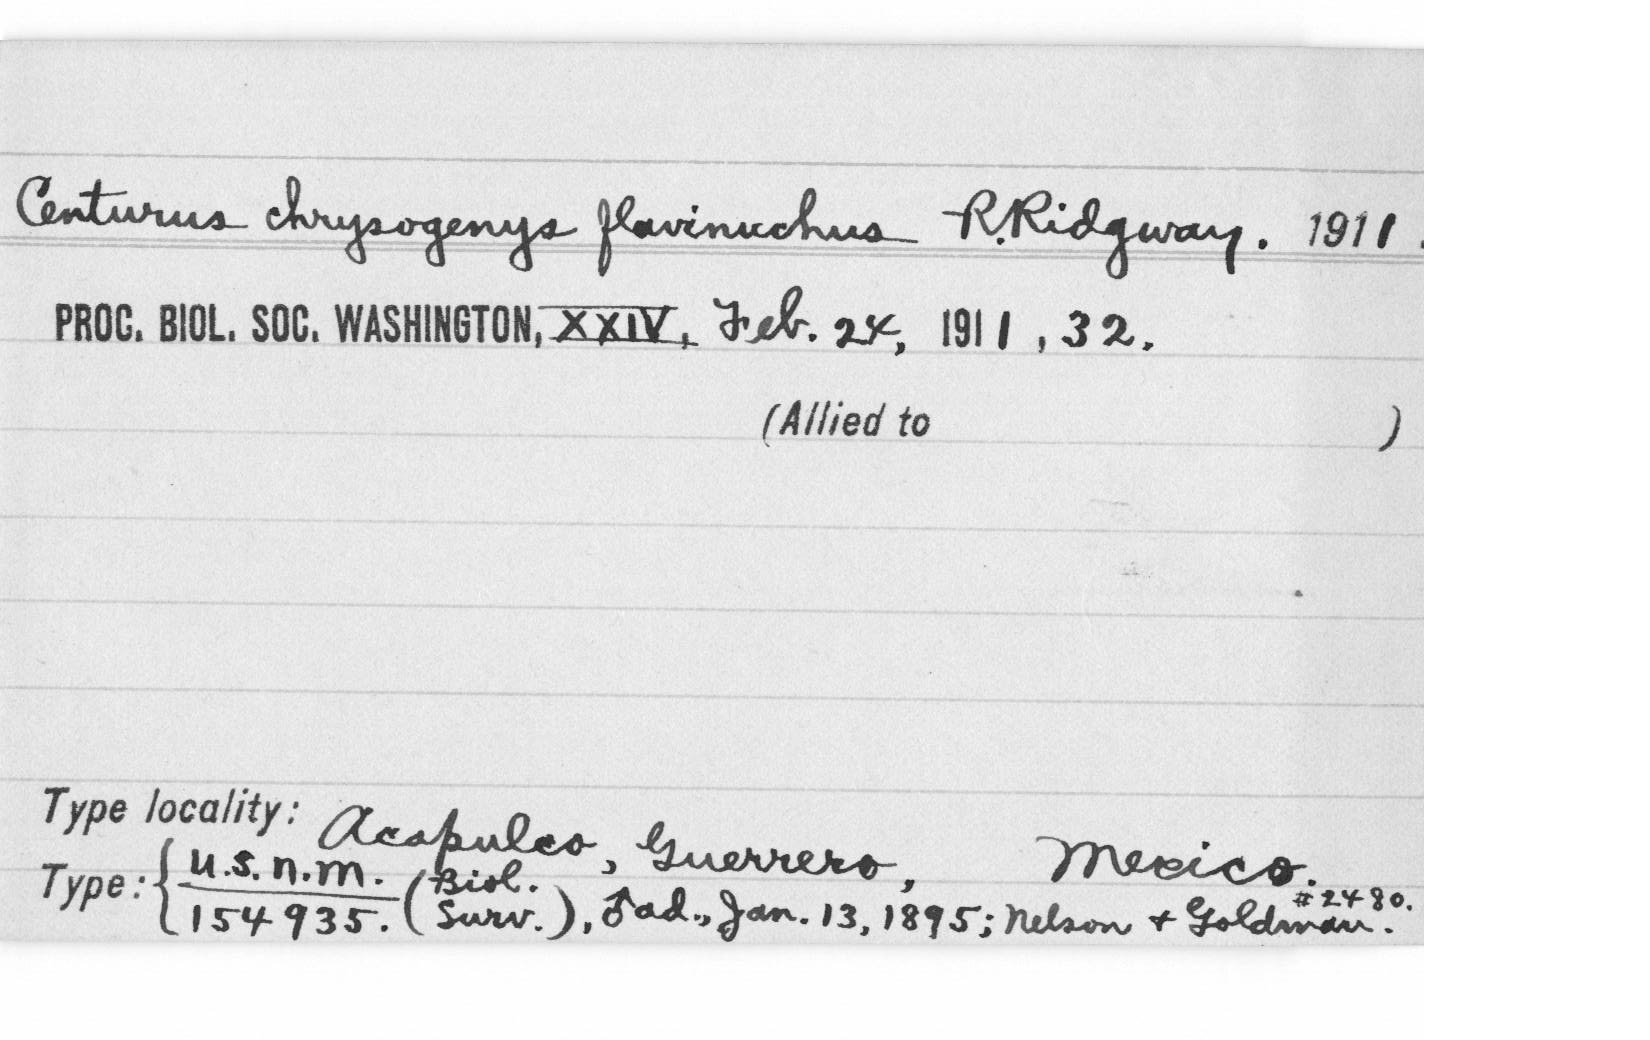 Centurus chrysogenys flavinuchus R. Ridgway. 1911.
PROC. BIOL. SOC. WASHINGTON, XXIV, Feb. 24, 1911, 32.
(Allied to )
Type locality: Acapulco, Guerrero, Mexico.
Type: { U.S.N.M. / 154935. (Biol. Surv.), ♂ ad., Jan. 13, 1895; Nelson + Goldman. #2480.